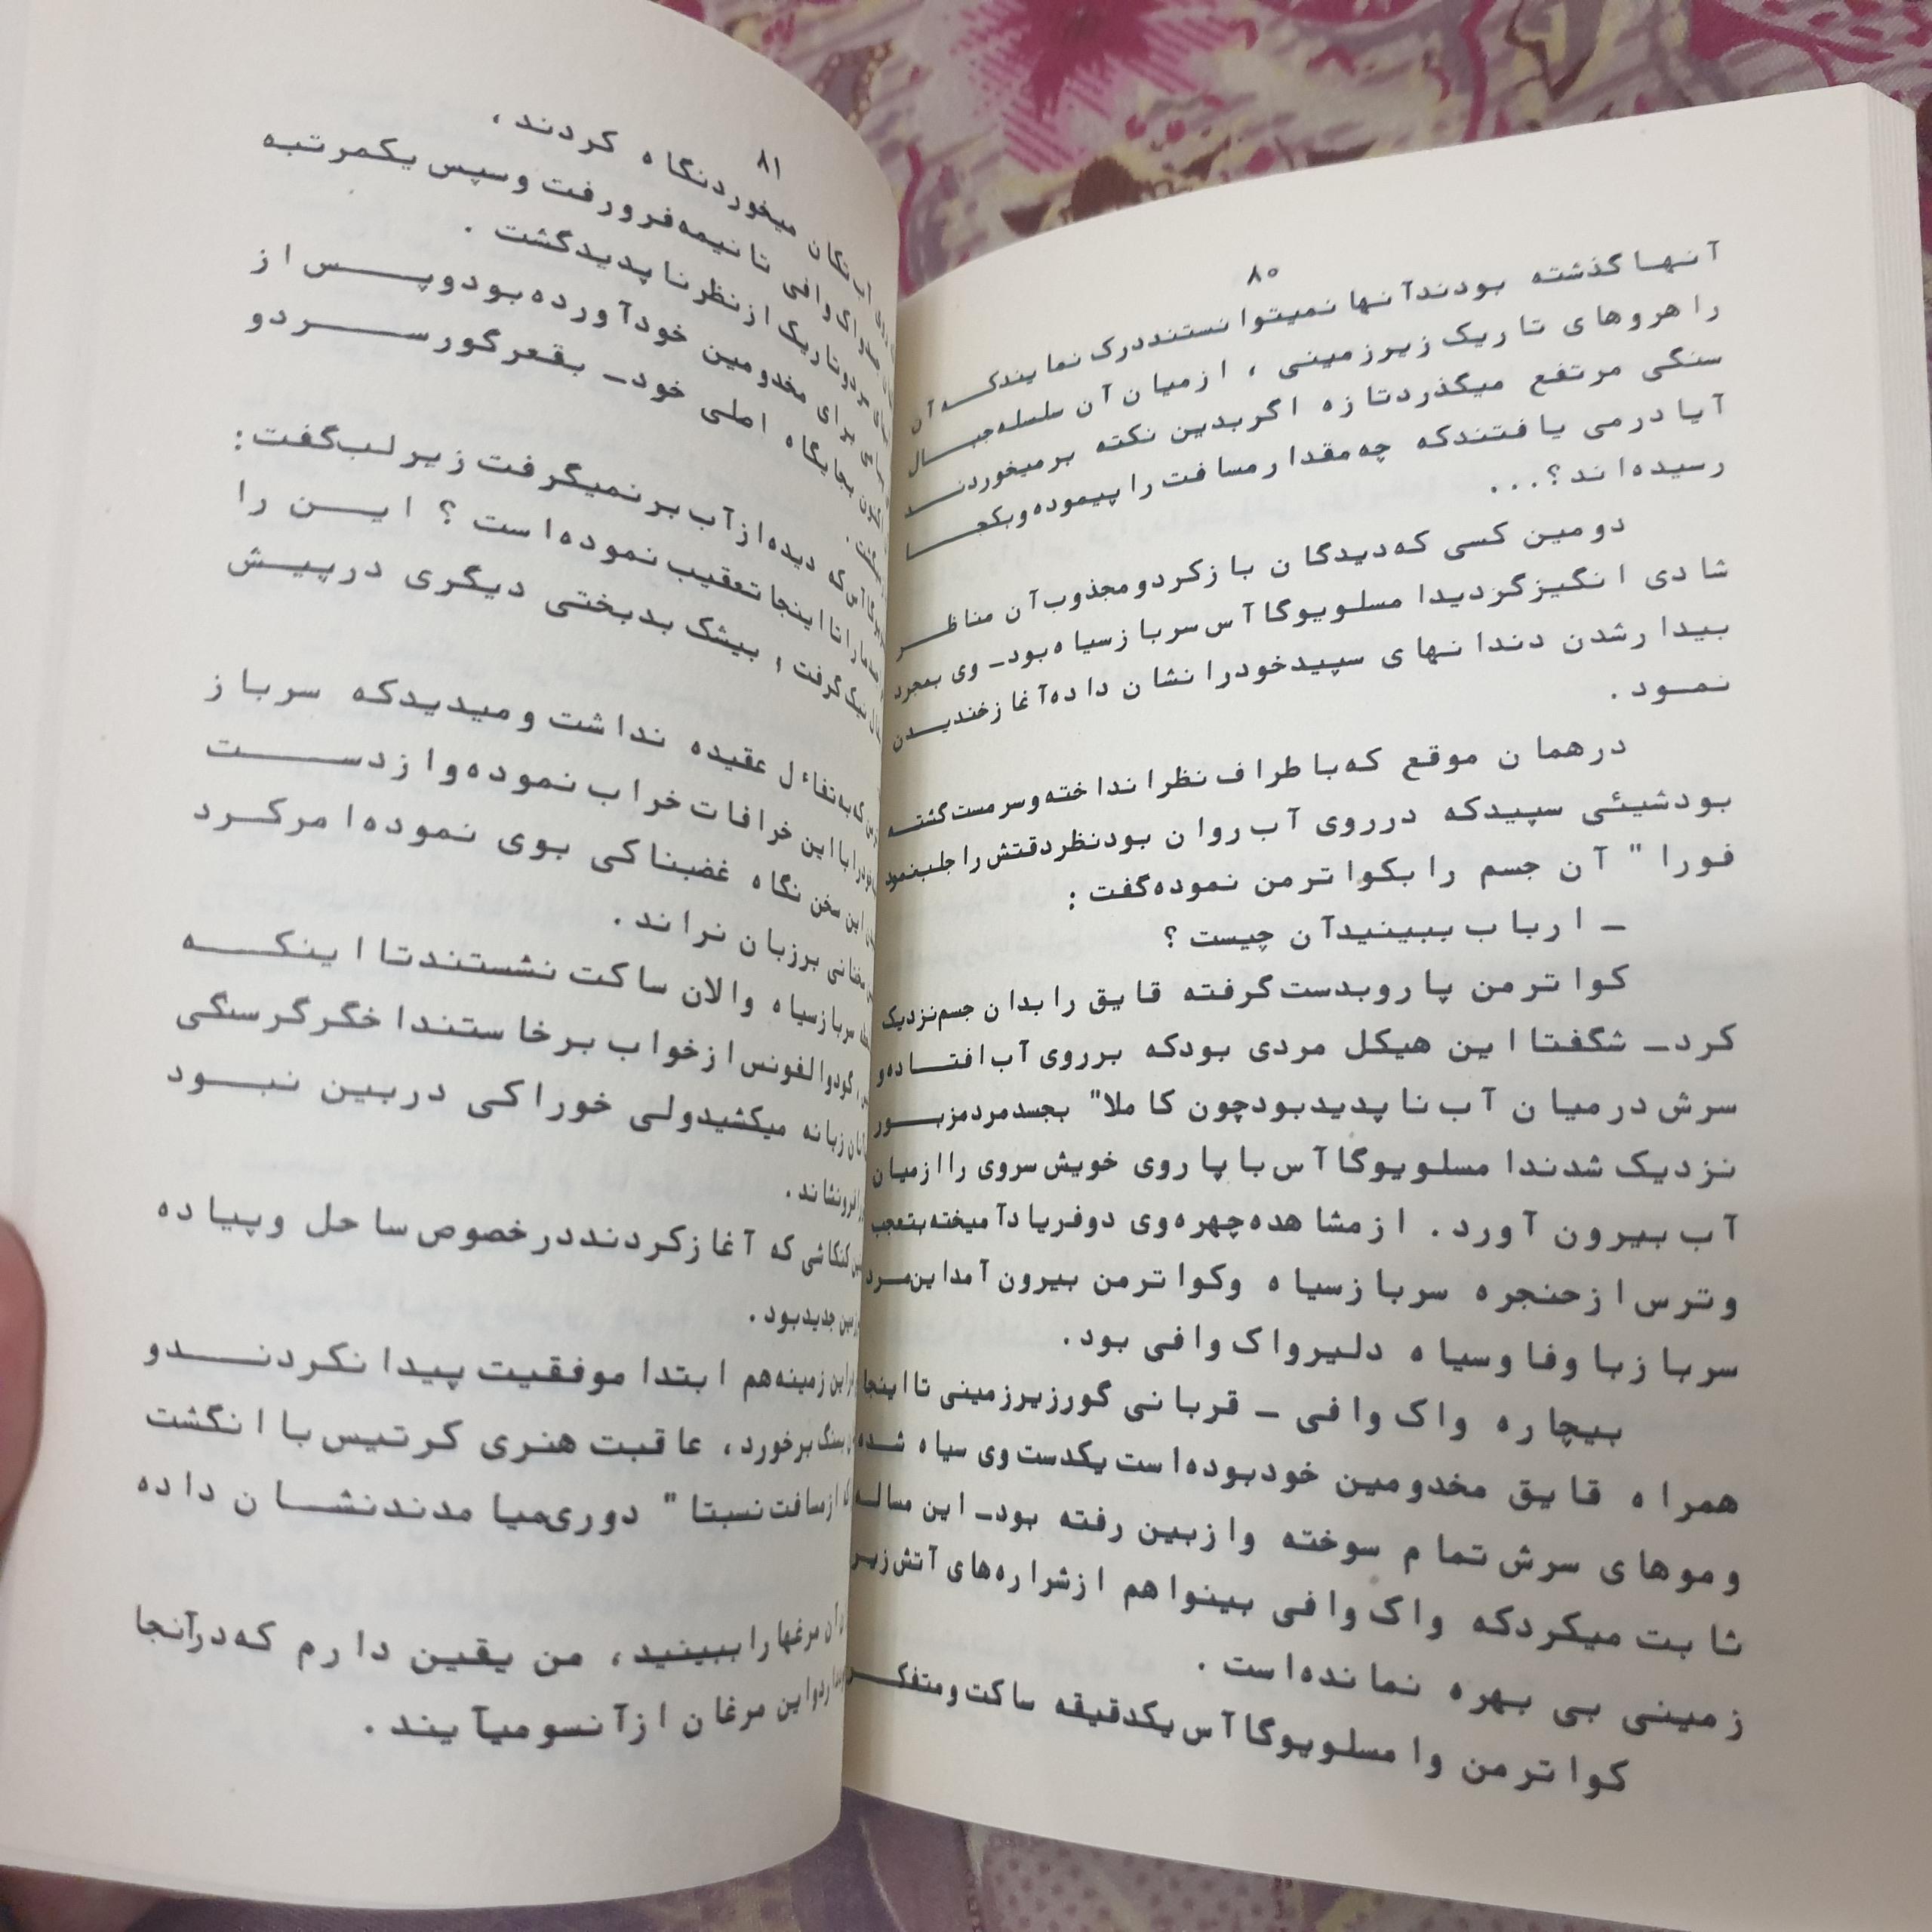 ۸۰
آنها گذشته بودند آنها نمیتوانستند درک نمایند که آن
راهروهای تاریک زیرزمینی ، از میان آن سلسله جبال
سنگی مرتفع میگذرد تازه اگر بدین نکته برمیخوردند
آیا درمی یافتند که چه مقدار مسافت را پیموده و بکجا
رسیده‌اند ؟...
دومین کسی که دیدگان باز کرد و مجذوب آن مناظر
شادی انگیز گردید امسلوپوگاآس سرباز سیاه بود ـ وی بمجرد
بیدار شدن دندانهای سپید خود را نشان داده آغاز خندیدن
نمود .
در همان موقع که باطراف نظر انداخته و سرمست گشته
بود شیئی سپید که در روی آب روان بود نظر دقتش را جلب نمود
فورا" آن جسم را بکواترمن نموده گفت :
ـ ارباب ببینید آن چیست ؟
کواترمن پارو بدست گرفته قایق را بدان جسم نزدیک
کرد ـ شگفتا این هیکل مردی بود که بر روی آب افتاده و
سرش در میان آب ناپدید بود چون کاملا" بجسد مرد مزبور
نزدیک شدند امسلوپوگاآس با پاروی خویش سروی را از میان
آب بیرون آورد. از مشاهده چهره وی دو فریاد آمیخته بتعجب
و ترس از حنجره سرباز سیاه و کواترمن بیرون آمد این مرد
سرباز با وفا و سیاه دلیر واک وافی بود.
بیچاره واک وافی ـ قربانی گور زیرزمینی تا اینجا
همراه قایق مخدومین خود بوده است یکدست وی سیاه شده
و موهای سرش تمام سوخته و از بین رفته بود ـ این مساله
ثابت میکرد که واک وافی بینوا هم از شراره‌های آتش زیر
زمینی بی بهره نمانده است .
کواترمن و امسلوپوگاآس یکدقیقه ساکت و متفکر
۸۱
آب تکان میخورد نگاه کردند ،
واک وافی تا نیمه فرو رفت و سپس یکمرتبه
تاریک از نظر ناپدید گشت .
برای مخدومین خود آورده بود و پس از
بجایگاه اصلی خود ـ بقعر گور سرد و
که دیده از آب بر نمیگرفت زیر لب گفت :
ما را تا اینجا تعقیب نموده است ؟ این را
نیک گرفت ، بیشک بدبختی دیگری در پیش
که به تفاءل عقیده نداشت و میدید که سرباز
با این خرافات خراب نموده و از دست
این سخن نگاه غضبناکی بوی نموده امر کرد
بر زبان نراند .
سرباز سیاه والان ساکت نشستند تا اینکه
گود و الفونس از خواب برخاستند اخگر گرسنگی
زبانه میکشید ولی خوراکی در بین نبود
فرونشاند .
کنکاشی که آغاز کردند در خصوص ساحل و پیاده
جدید بود .
این زمینه هم ابتدا موفقیت پیدا نکردند و
سنگ برخورد ، عاقبت هنری کرتیس با انگشت
از مسافت نسبتا" دوری میامدند نشان داده
آن مرغها را ببینید ، من یقین دارم که در آنجا
و این مرغان از آنسو میآیند .